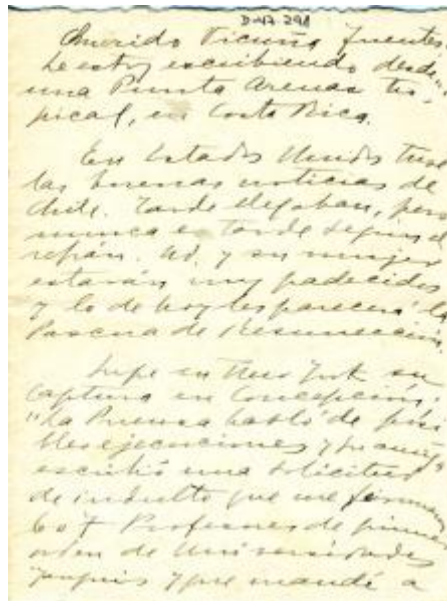 D-42-298
Querido Vicuña Fuentes,
Le estoy escribiendo desde
una Punta Arenas tro-
pical, en Costa Rica.
En Estados Unidos tuve
las buenas noticias de
Chile. Tarde llegaban, pero
nunca es tarde según el
refrán. Ud. y su mujer
estarán muy padecidos
y lo de hoy les parecerá la
Pascua de Resurrección.
Supe en New York su
captura en Concepción.
"La Prensa habló de posi
bles ejecuciones y yo
escribió una solicitud
de indulto que me firmaron
6 o 7 Profesores de primer
orden de Universidades
yanquis y que mandé a